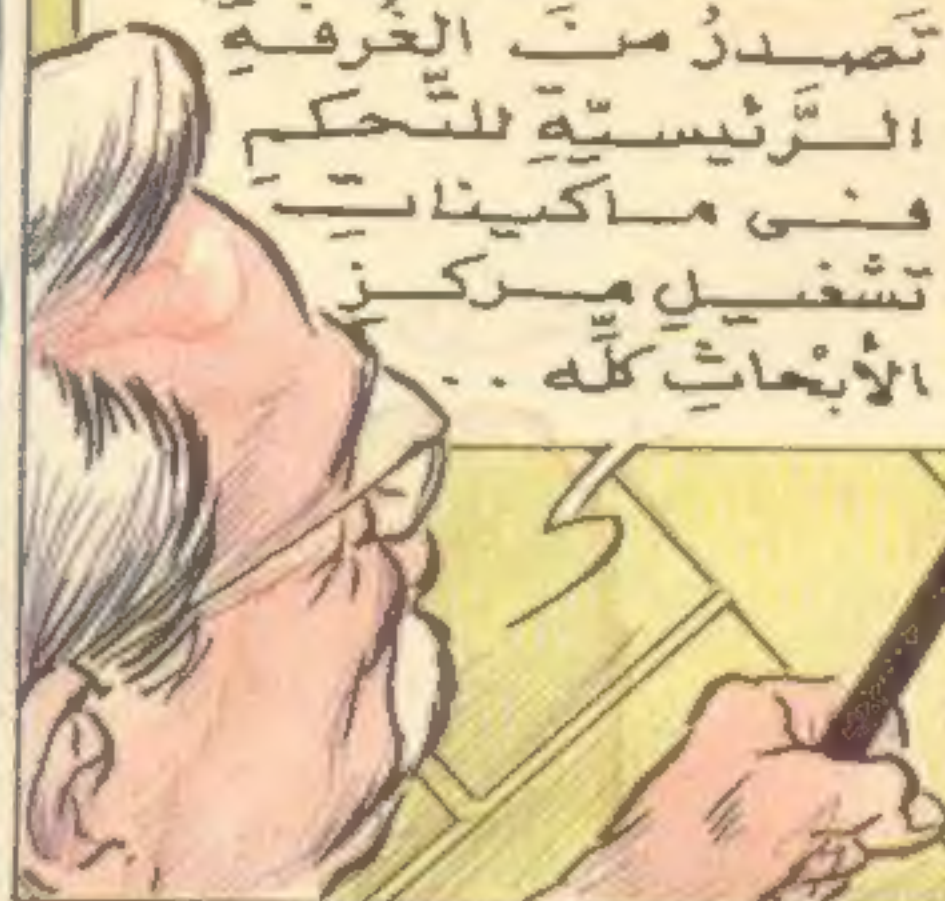 تَصدرُ منَ الغُرفةِ
الرَّئيسيّةِ للتَّحكمِ
فى ماكيناتِ
تَشغيلِ مركزِ
الأبْحاثِ كلِّه ..